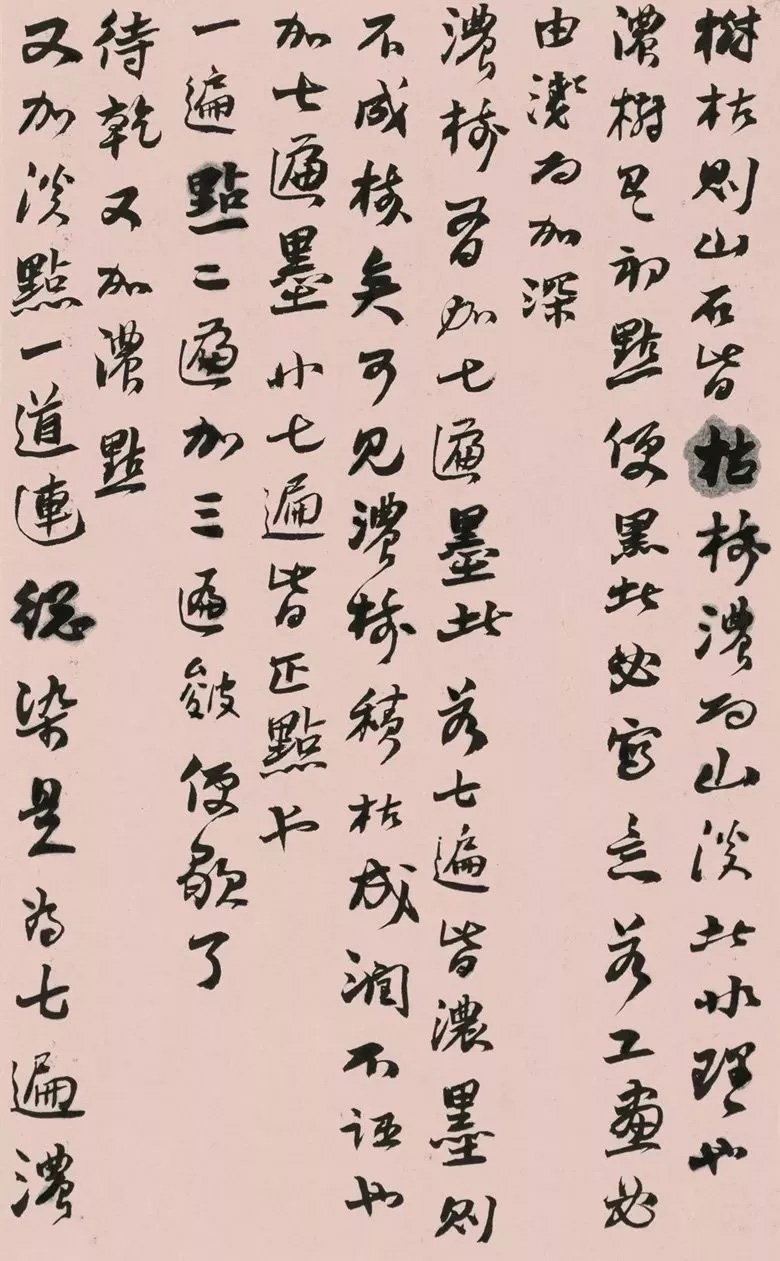 樹枯則山石皆枯樹濃而山淡此非理也
濃樹只初點便黑此必寫意若工畫必
由淺而加深
濃樹有加七遍墨此若七遍皆濃墨則
不成樹矣可見濃樹積枯成潤不誣也
加七遍墨非七遍皆正點也
一遍點二遍加三遍皴便歇了
待乾又加濃點
又加淡點一道連總染是為七遍濃